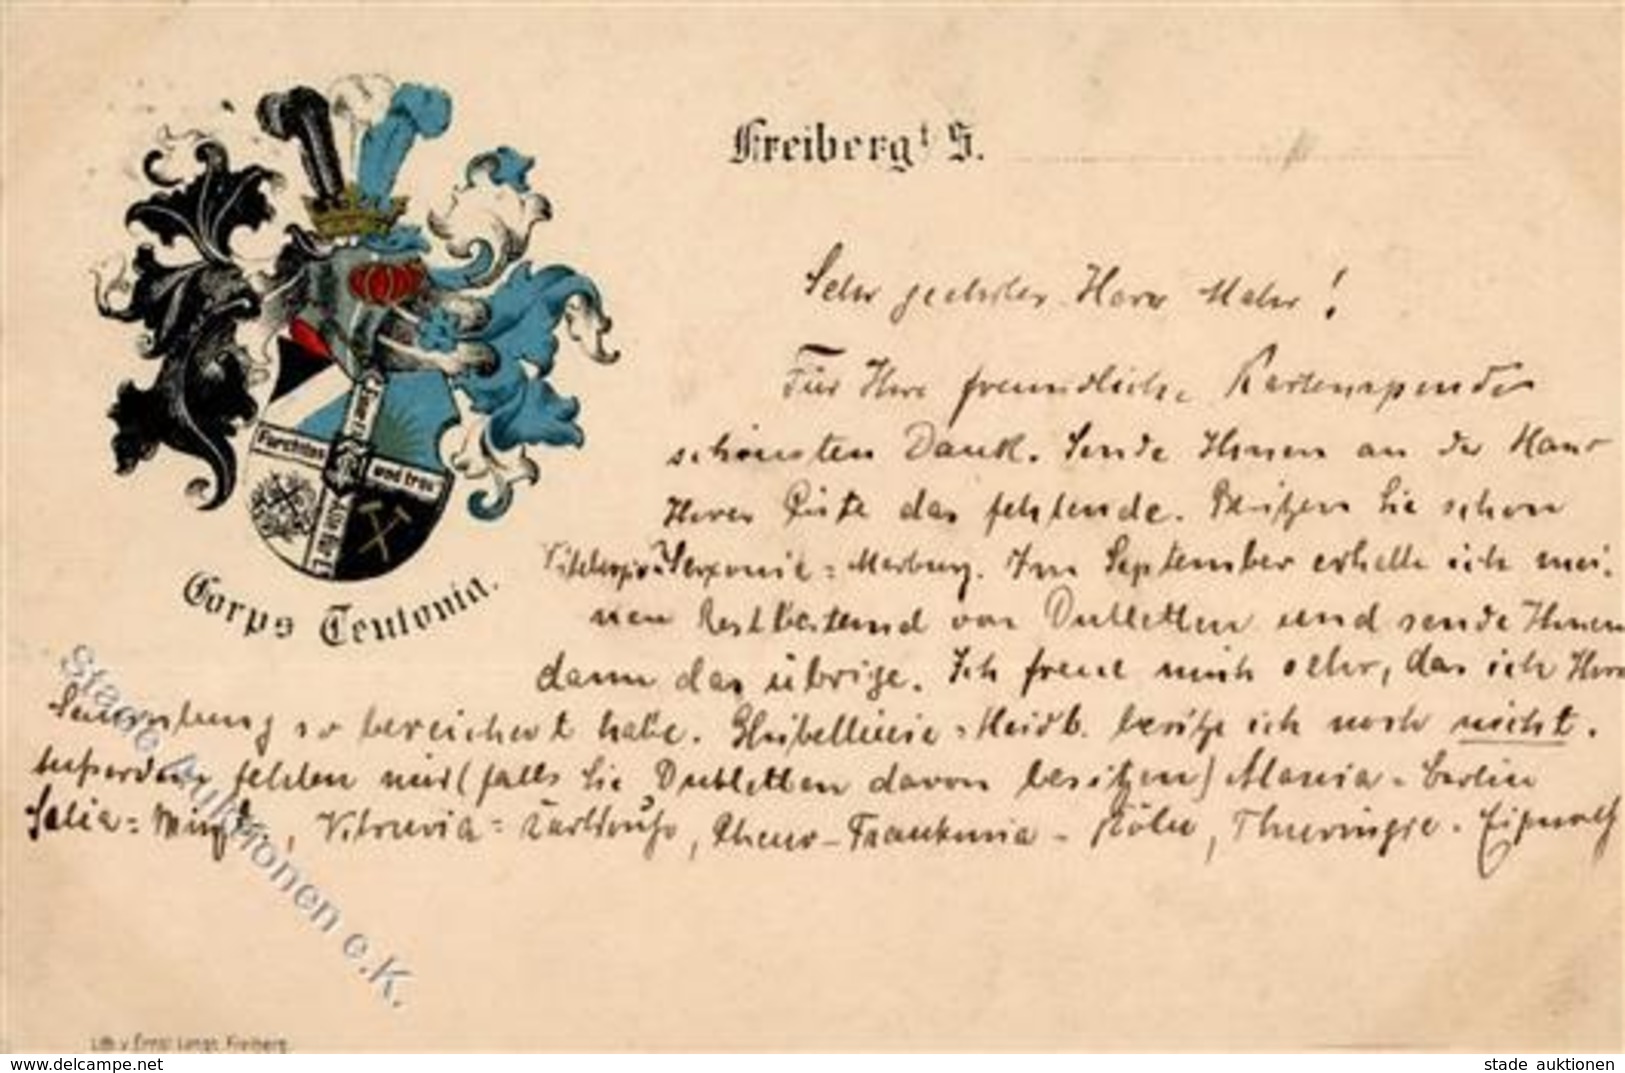 Freiberg i S.
Sehr geehrter Herr Mehr!
Für Ihre freundliche Kartenspende
schönsten Dank. Sende Ihnen an der Hand
Ihrer Liste das fehlende. Besitzen Sie schon
Saxonia-Marburg. Im September erhalte ich mei-
nen Restbestand von Dubletten und sende Ihnen
dann das übrige. Ich freue mich sehr, das ich Ihre
Sammlung so bereichert habe. Ghibellinia-Heidb. besitze ich noch nicht.
Außerdem fehlen mir (falls Sie Dubletten davon besitzen) Alania-Berlin
Salia-, Vitruvia-, Rheno-Frankonia-Köln, Thuringia-
Furchtlos
und treu
Corps Teutonia.
stade auktionen e.K.
Lith. v. Ernst Lange, Freiberg.
www.delcampe.net
stade auktionen